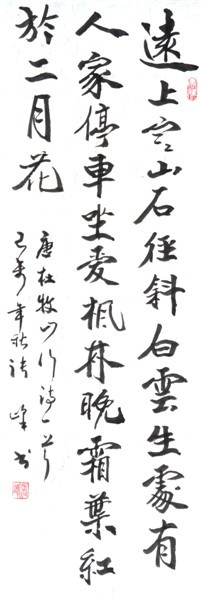 遠上寒山石徑斜白雲生處有
人家停車坐愛楓林晚霜葉紅
於二月花
唐杜牧山行詩一首
己卯年秋諸峰書